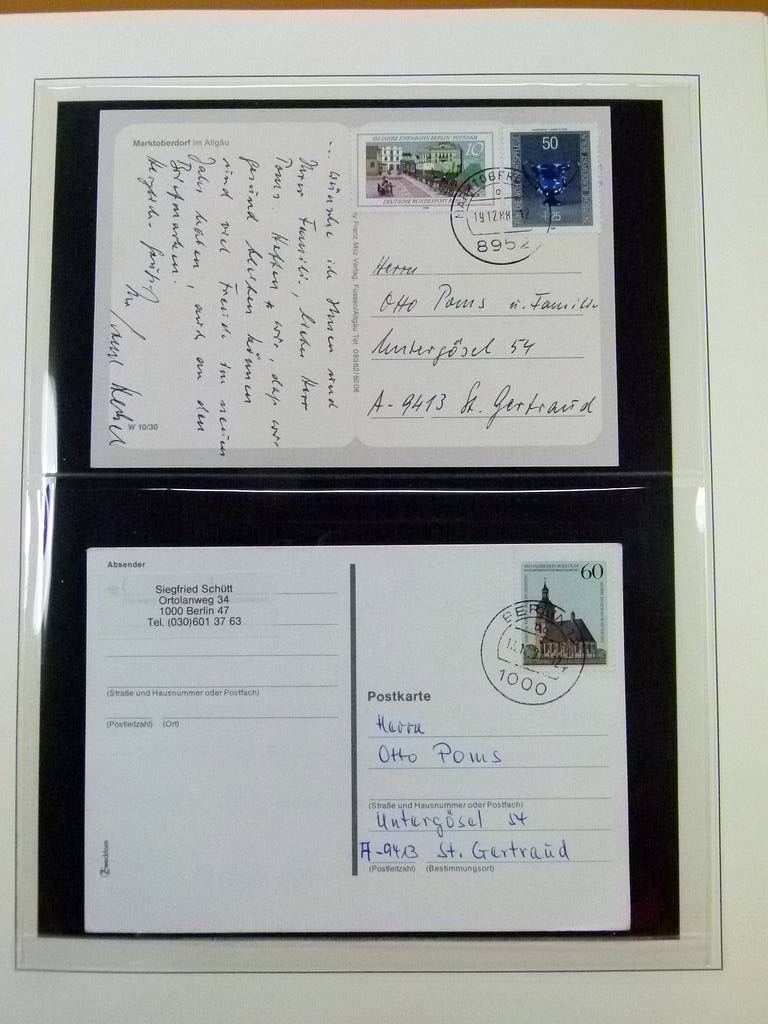 Marktoberdorf im Allgäu
... wünsche ich Ihnen und
Ihrer Familie, lieber Herr
Poms. Hoffen wir, daß wir
gesund bleiben können
und viel Freude im neuen
Jahr haben, auch an den
Briefmarken.
Herzliche Grüße
Ihr
W 10/30
by Franz Milz Verlag, Füssen/Allgäu Tel. 08362/6008
150 JAHRE EISENBAHN BERLIN-POTSDAM
10
DEUTSCHE BUNDESPOST BERLIN
50
+25
DEUTSCHE BUNDESPOST BERLIN
MARKTOBERDORF
19.12.88
8952
Herrn
Otto Poms u. Familie
Untergösel 54
A-9413 St. Gertraud
Absender
Siegfried Schütt
Ortolanweg 34
1000 Berlin 47
Tel. (030)601 37 63
(Straße und Hausnummer oder Postfach)
(Postleitzahl) (Ort)
Zweckform
60
BERLIN
1000
Postkarte
Herrn
Otto Poms
(Straße und Hausnummer oder Postfach)
Untergösel 54
A-9413 St. Gertraud
(Postleitzahl) (Bestimmungsort)